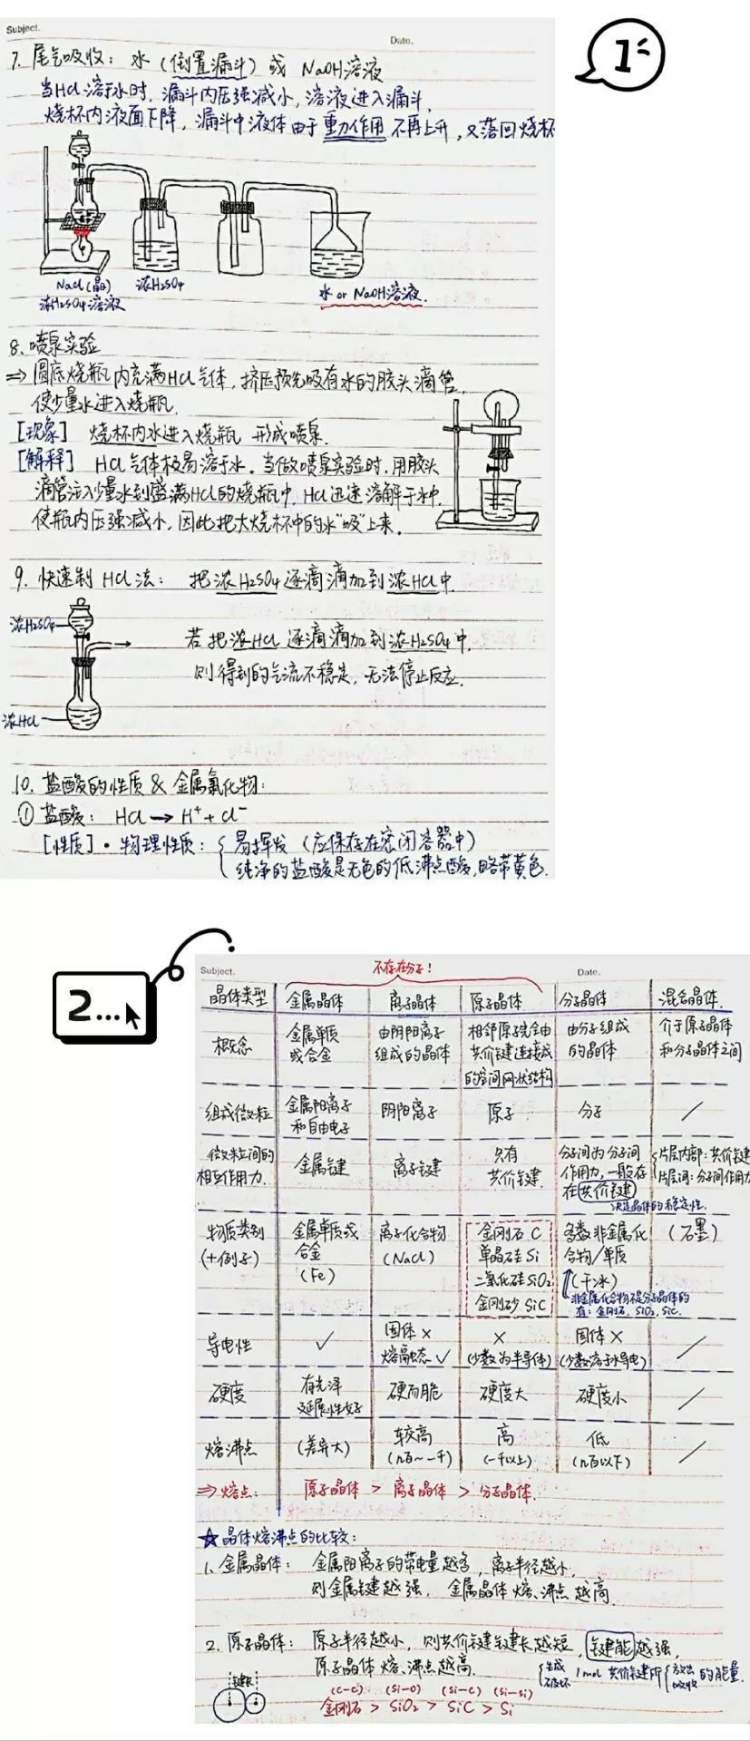 Subject.
Date.
1:
7. 尾气吸收: 水 (倒置漏斗) 或 NaOH溶液
当HCl溶于水时, 漏斗内压强减小, 溶液进入漏斗,
烧杯内液面下降, 漏斗中液体由于重力作用不再上升, 又落回烧杯
NaCl(晶)
浓H₂SO₄溶液
浓H₂SO₄
水 or NaOH溶液.
8. 喷泉实验
⇒ 圆底烧瓶内充满HCl气体, 挤压预先吸有水的胶头滴管,
使少量水进入烧瓶.
[现象] 烧杯内水进入烧瓶 形成喷泉.
[解释] HCl气体极易溶于水. 当做喷泉实验时, 用胶头
滴管注入少量水到盛满HCl的烧瓶中, HCl迅速溶解于水中,
使瓶内压强减小, 因此把大烧杯中的水"吸"上来.
9. 快速制HCl法: 把浓H₂SO₄逐滴滴加到浓HCl中.
浓H₂SO₄
若把浓HCl逐滴滴加到浓H₂SO₄中,
则得到的气流不稳定, 无法停止反应.
浓HCl
10. 盐酸的性质 & 金属氯化物:
① 盐酸: HCl → H⁺ + Cl⁻
[性质]·物理性质: { 易挥发 (应保存在密闭容器中)
纯净的盐酸是无色的低沸点酸, 略带黄色.
2...
Subject.
不存在分子!
Date.
晶体类型 金属晶体 离子晶体 原子晶体 分子晶体 混合晶体.
概念 金属单质或合金 由阴阳离子组成的晶体 相邻原子完全由共价键连接成的空间网状结构 由分子组成的晶体 介于原子晶体和分子晶体之间
组成微粒 金属阳离子和自由电子 阴阳离子 原子 分子 /
微粒间的相互作用力. 金属键 离子键 只有共价键 分子间为分子间作用力, 一般存在共价键 { 片层内部: 共价键 片层间: 分子间作用力
决定晶体的稳定性.
物质类别(+例子) 金属单质或合金(Fe) 离子化合物(NaCl) 金刚石 C 单晶硅 Si 二氧化硅 SiO₂ 金刚砂 SiC 多数非金属化合物/单质(干冰) (石墨)
非金属化合物不是分子晶体的有: 金刚石, SiO₂, SiC.
导电性 ✓ 固体 × 熔融态 ✓ × (少数为半导体) 固体 × (少数溶于水导电) /
硬度 有光泽 延展性好 硬而脆 硬度大 硬度小 /
熔沸点 (差异大) 较高(几百~一千) 高(一千以上) 低(几百以下) /
⇒ 熔点: 原子晶体 > 离子晶体 > 分子晶体.
☆ 晶体熔沸点的比较:
1. 金属晶体: 金属阳离子的带电量越多, 离子半径越小,
则金属键越强, 金属晶体熔、沸点越高.
2. 原子晶体: 原子半径越小, 则共价键键长越短, 键能越强,
原子晶体熔、沸点越高. { 生成 1mol 共价键所 { 放出 的能量.
键长
(C-C) (Si-O) (Si-C) (Si-Si)
金刚石 > SiO₂ > SiC > Si